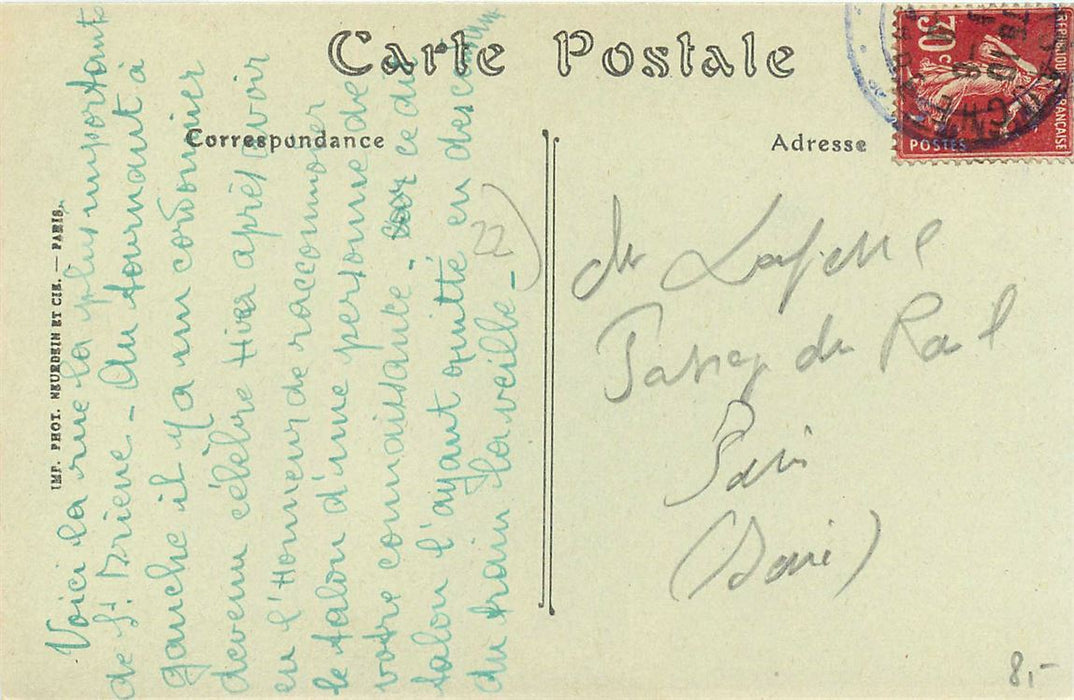 Carte Postale
Correspondance
Adresse
RÉPUBLIQUE FRANÇAISE
30 c
POSTES
IMP. PHOT. NEURDEIN ET CIE. — PARIS.
Voici la rue la plus importante
de St Brieuc - Au tournant à
gauche il y a un cordonnier
devenu célèbre après avoir
eu l'Honneur de raccommoder
le talon d'une personne de
votre connaissance - ce dit
talon l'ayant quitté en descendant
du train la veille -
22)
de
du
Paris
8,-